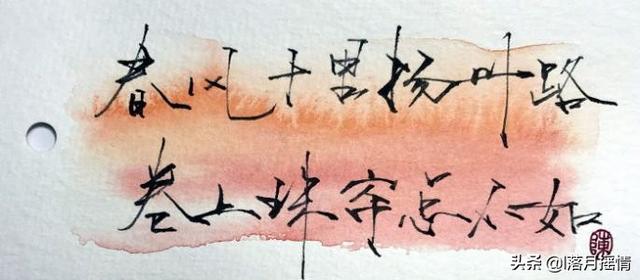 春风十里扬州路
卷上珠帘总不如
陳
头条 @l落月摇情